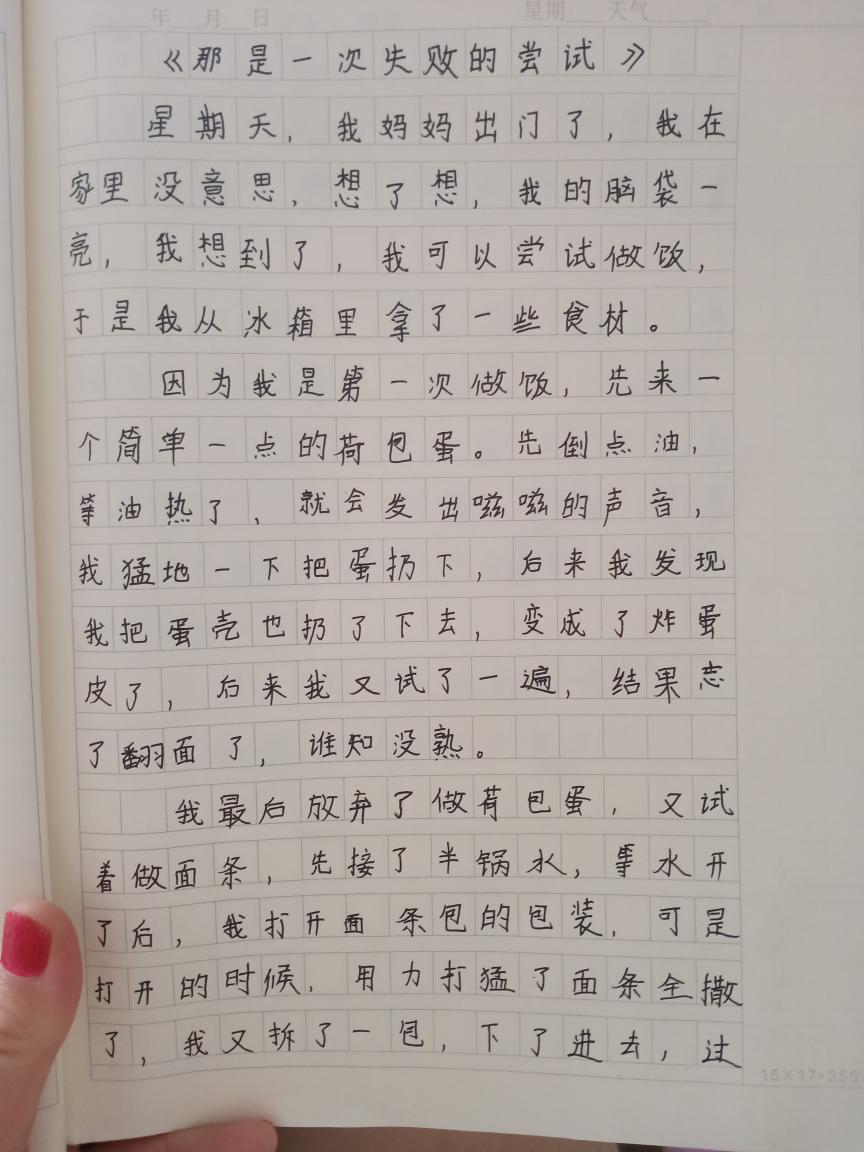 年 月 日 星期 天气
《那是一次失败的尝试》
星期天，我妈妈出门了，我在
家里没意思，想了想，我的脑袋一
亮，我想到了，我可以尝试做饭，
于是我从冰箱里拿了一些食材。
因为我是第一次做饭，先来一
个简单一点的荷包蛋。先倒点油，
等油热了，就会发出嗞嗞的声音，
我猛地一下把蛋扔下，后来我发现
我把蛋壳也扔了下去，变成了炸蛋
皮了，后来我又试了一遍，结果忘
了翻面了，谁知没熟。
我最后放弃了做荷包蛋，又试
着做面条，先接了半锅水，等水开
了后，我打开面条包的包装，可是
打开的时候，用力打猛了面条全撒
了，我又拆了一包，下了进去，过
15×17=255